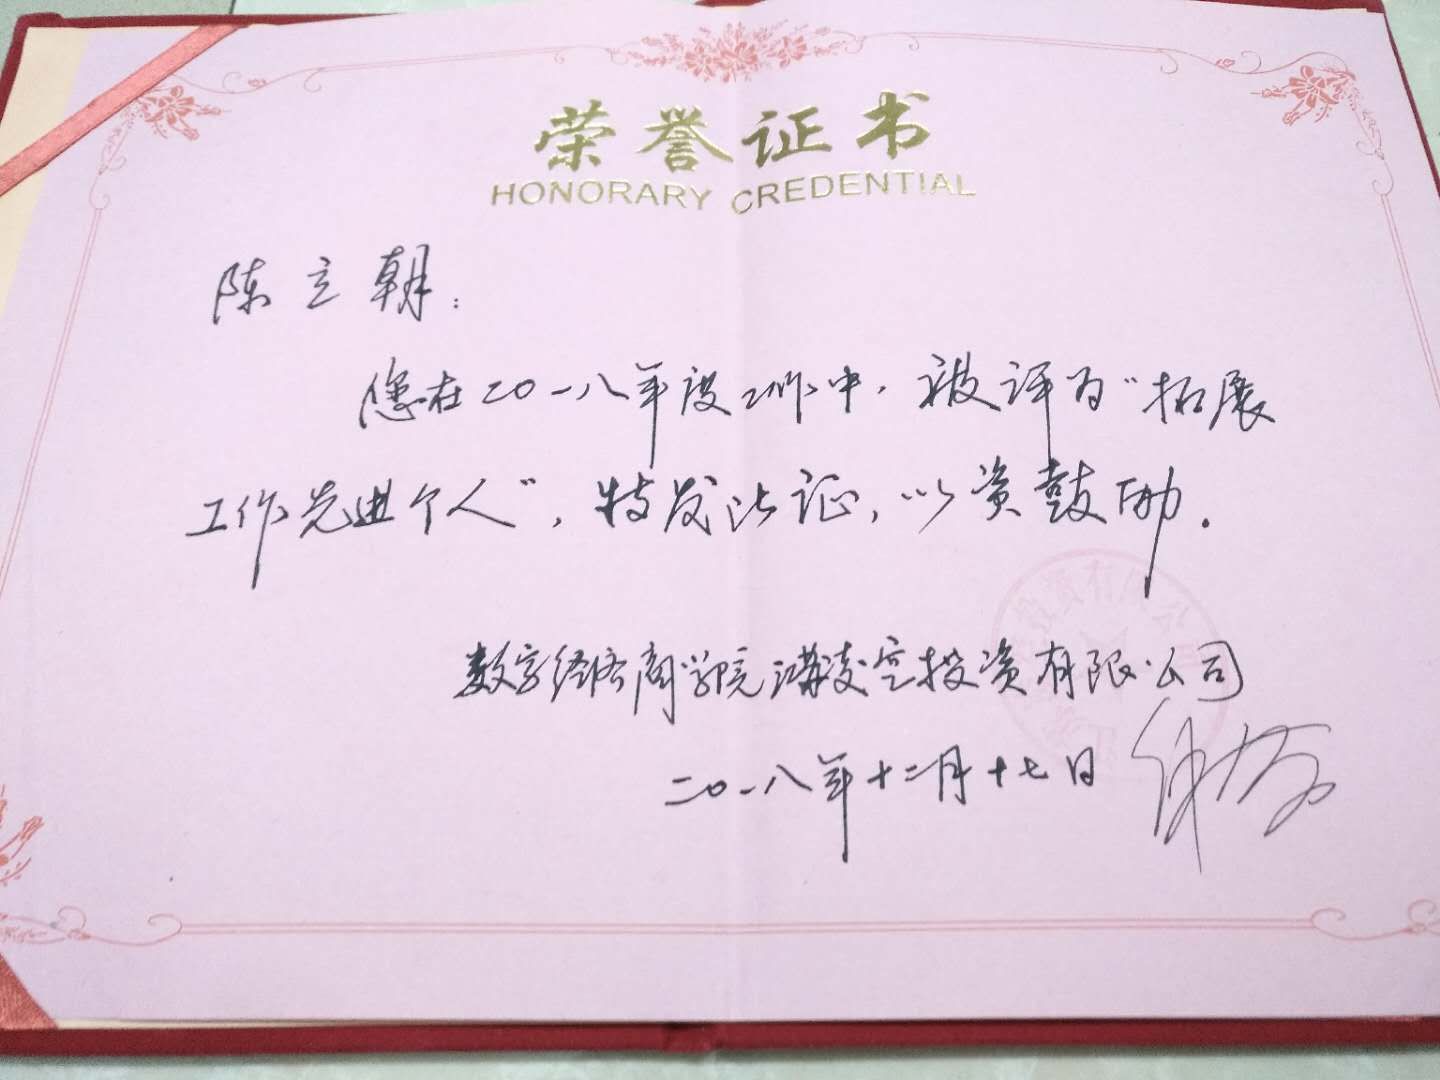 荣誉证书
HONORARY CREDENTIAL
陈立朝：
您在二〇一八年度工作中，被评为“拓展
工作先进个人”，特发此证，以资鼓励．
数字经济商学院满凌空投资有限公司
二〇一八年十二月十七日
投资有限公司